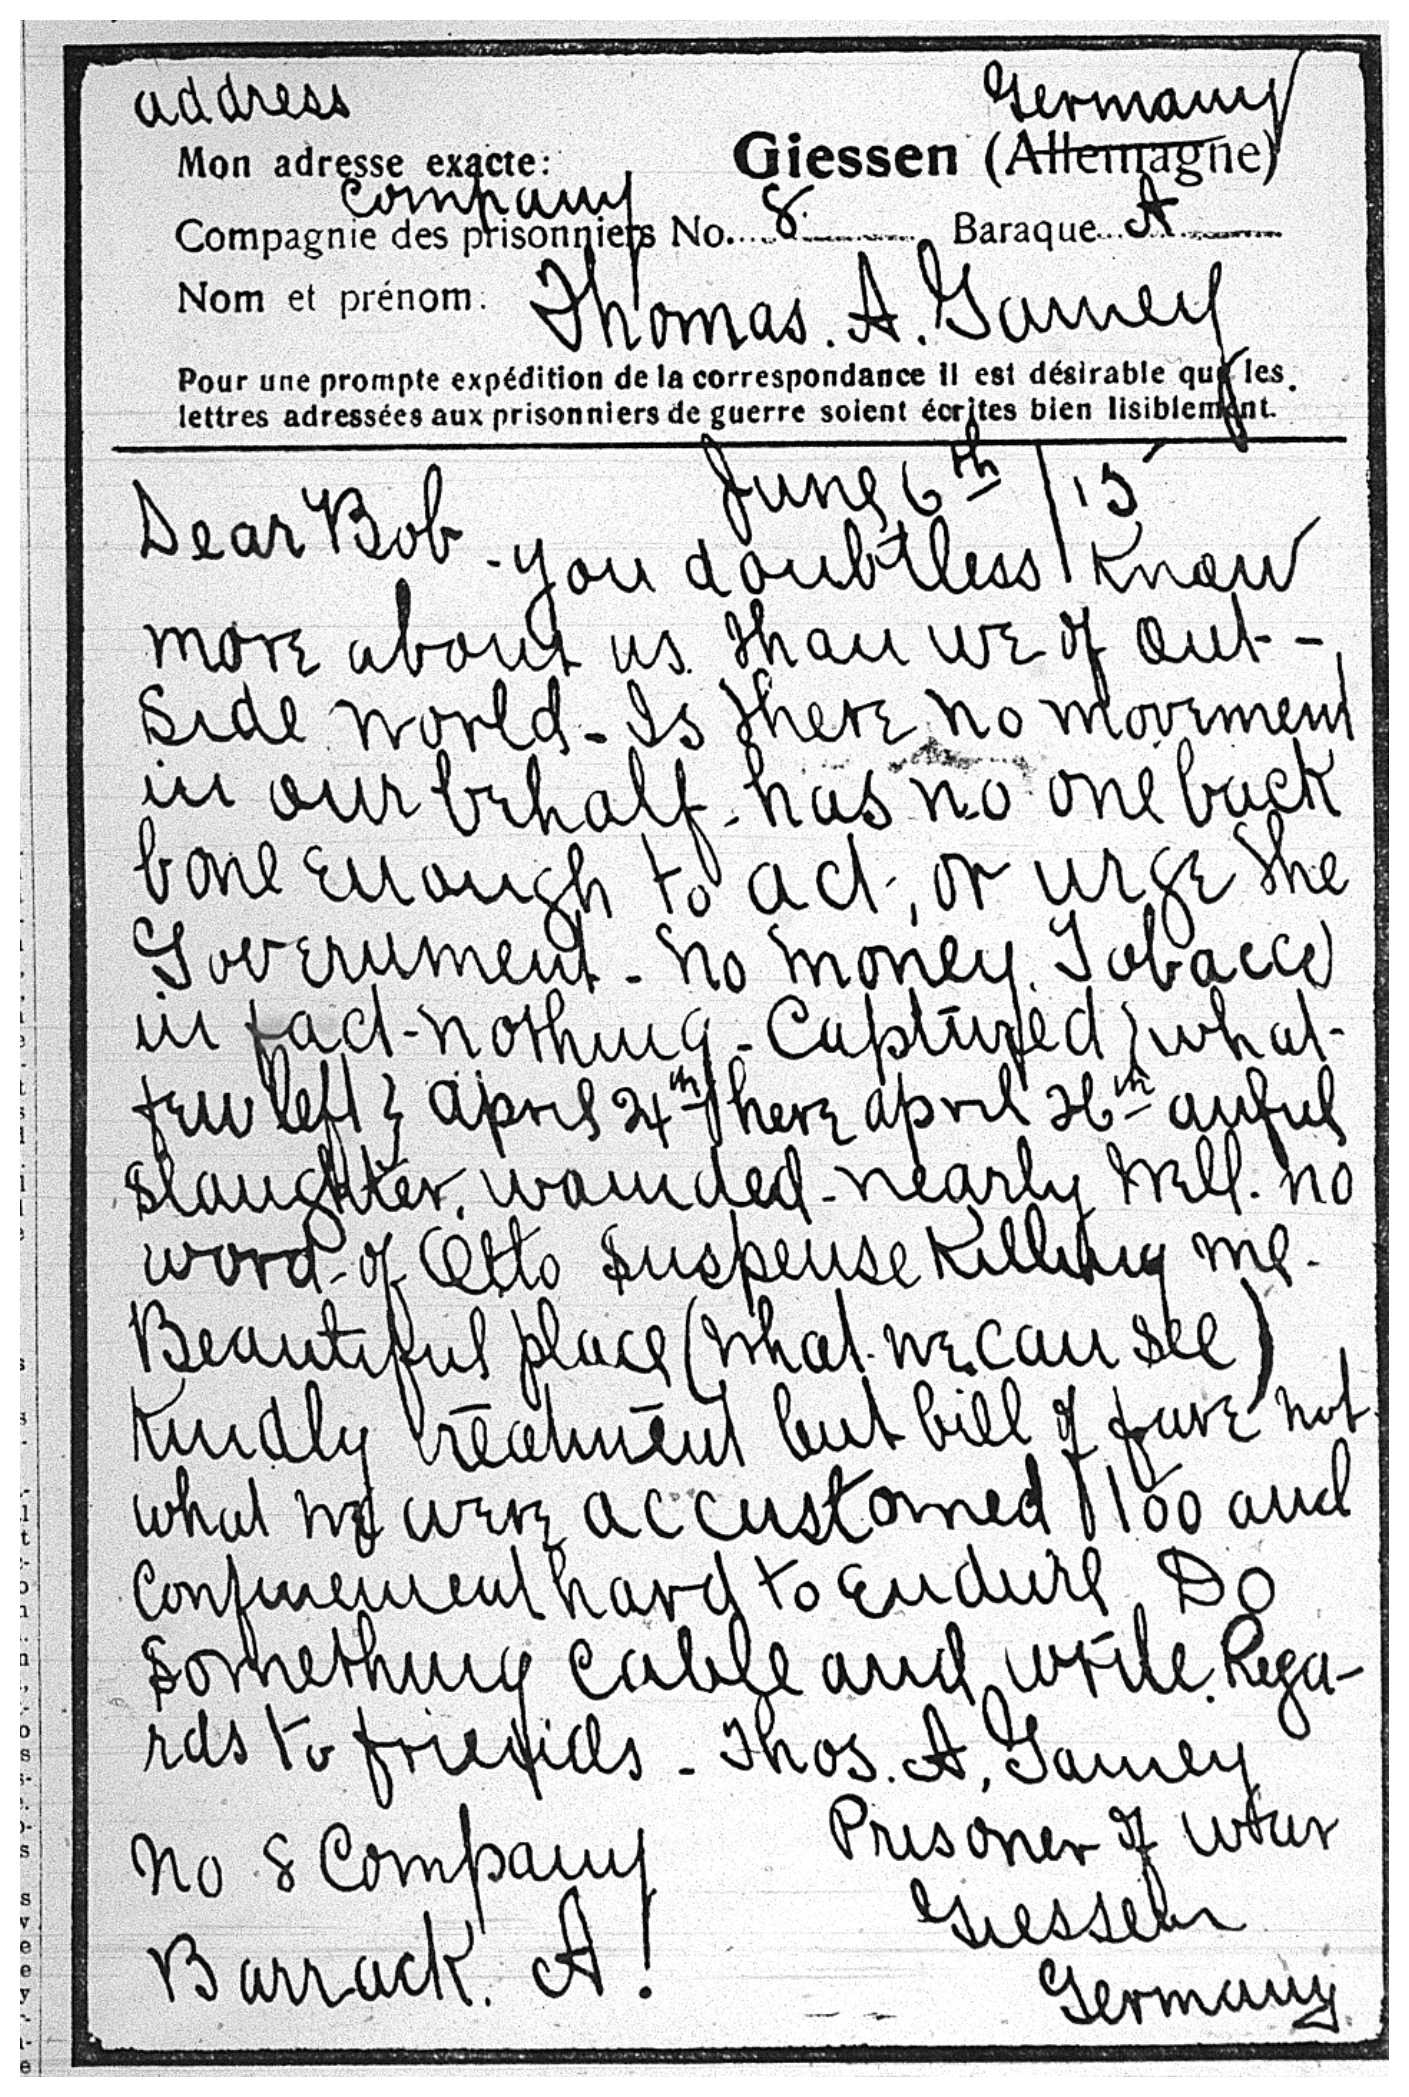 address Germany
Mon adresse exacte: Giessen (Allemagne)
Company
Compagnie des prisonniers No. 8. Baraque A
Nom et prénom: Thomas. A. Gamey
Pour une prompte expédition de la correspondance il est désirable que les
lettres adressées aux prisonniers de guerre soient écrites bien lisiblement.
June 6th / 15
Dear Bob - you doubtless know
more about us than we of out-
side world - Is there no movement
in our behalf - has no one back
bone enough to act, or urge the
Government - no money. Tobacco
in fact - nothing - Captured { what
few left } April 24th here april 26th awful
slaughter. wounded - nearly well. no
word - of Otto suspense killing me.
Beautiful place (what we can see)
Kindly treatment but bill of fare not
what we were accustomed too and
confinement hard to endure Do
something cable and write. Rega-
rds to friends - Thos. A. Gamey
No 8 Company Prisoner of war
Giessen
Barrack. A! Germany